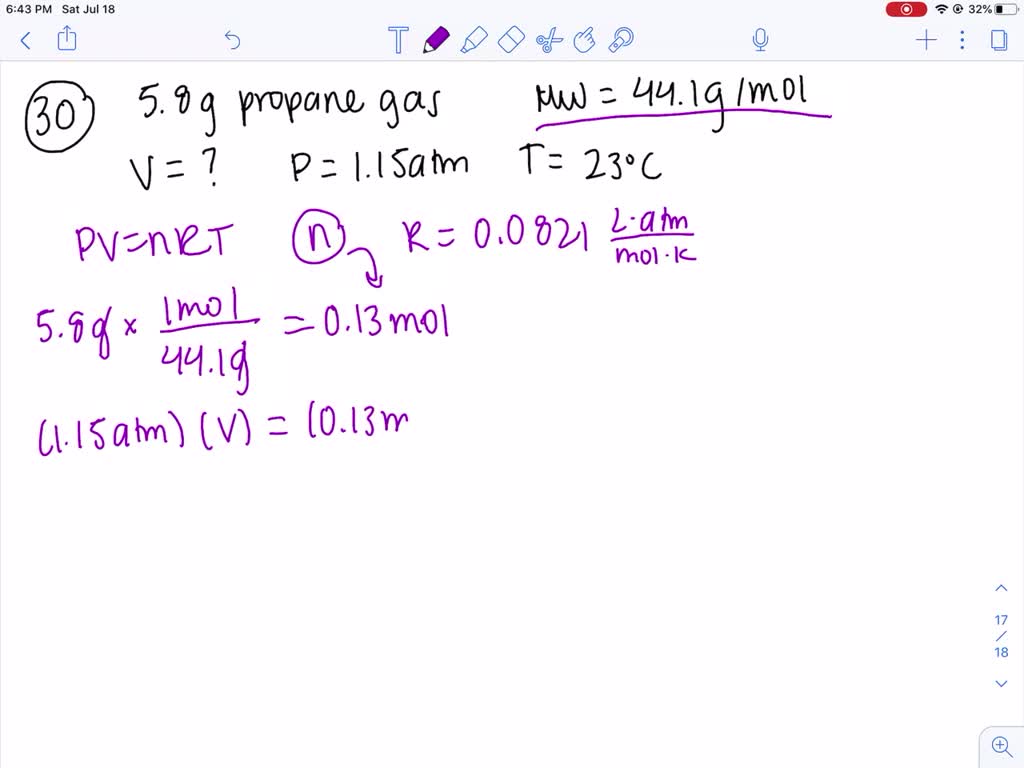 6:43 PM Sat Jul 18 32%
30 5.8g propane gas MW = 44.1g/mol
V = ? P = 1.15atm T = 23°C
PV=nRT n R = 0.0821 L·atm/mol·K
5.8g × 1mol/44.1g = 0.13mol
(1.15atm) (V) = (0.13m
17
/
18